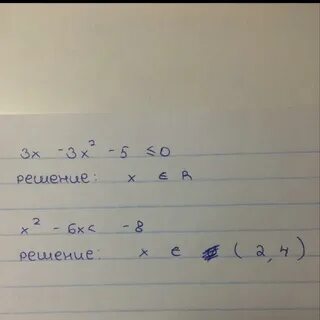 3x - 3x² - 5 ≤ 0
решение: x ∈ R
x² - 6x < -8
решение: x ∈ (2, 4)